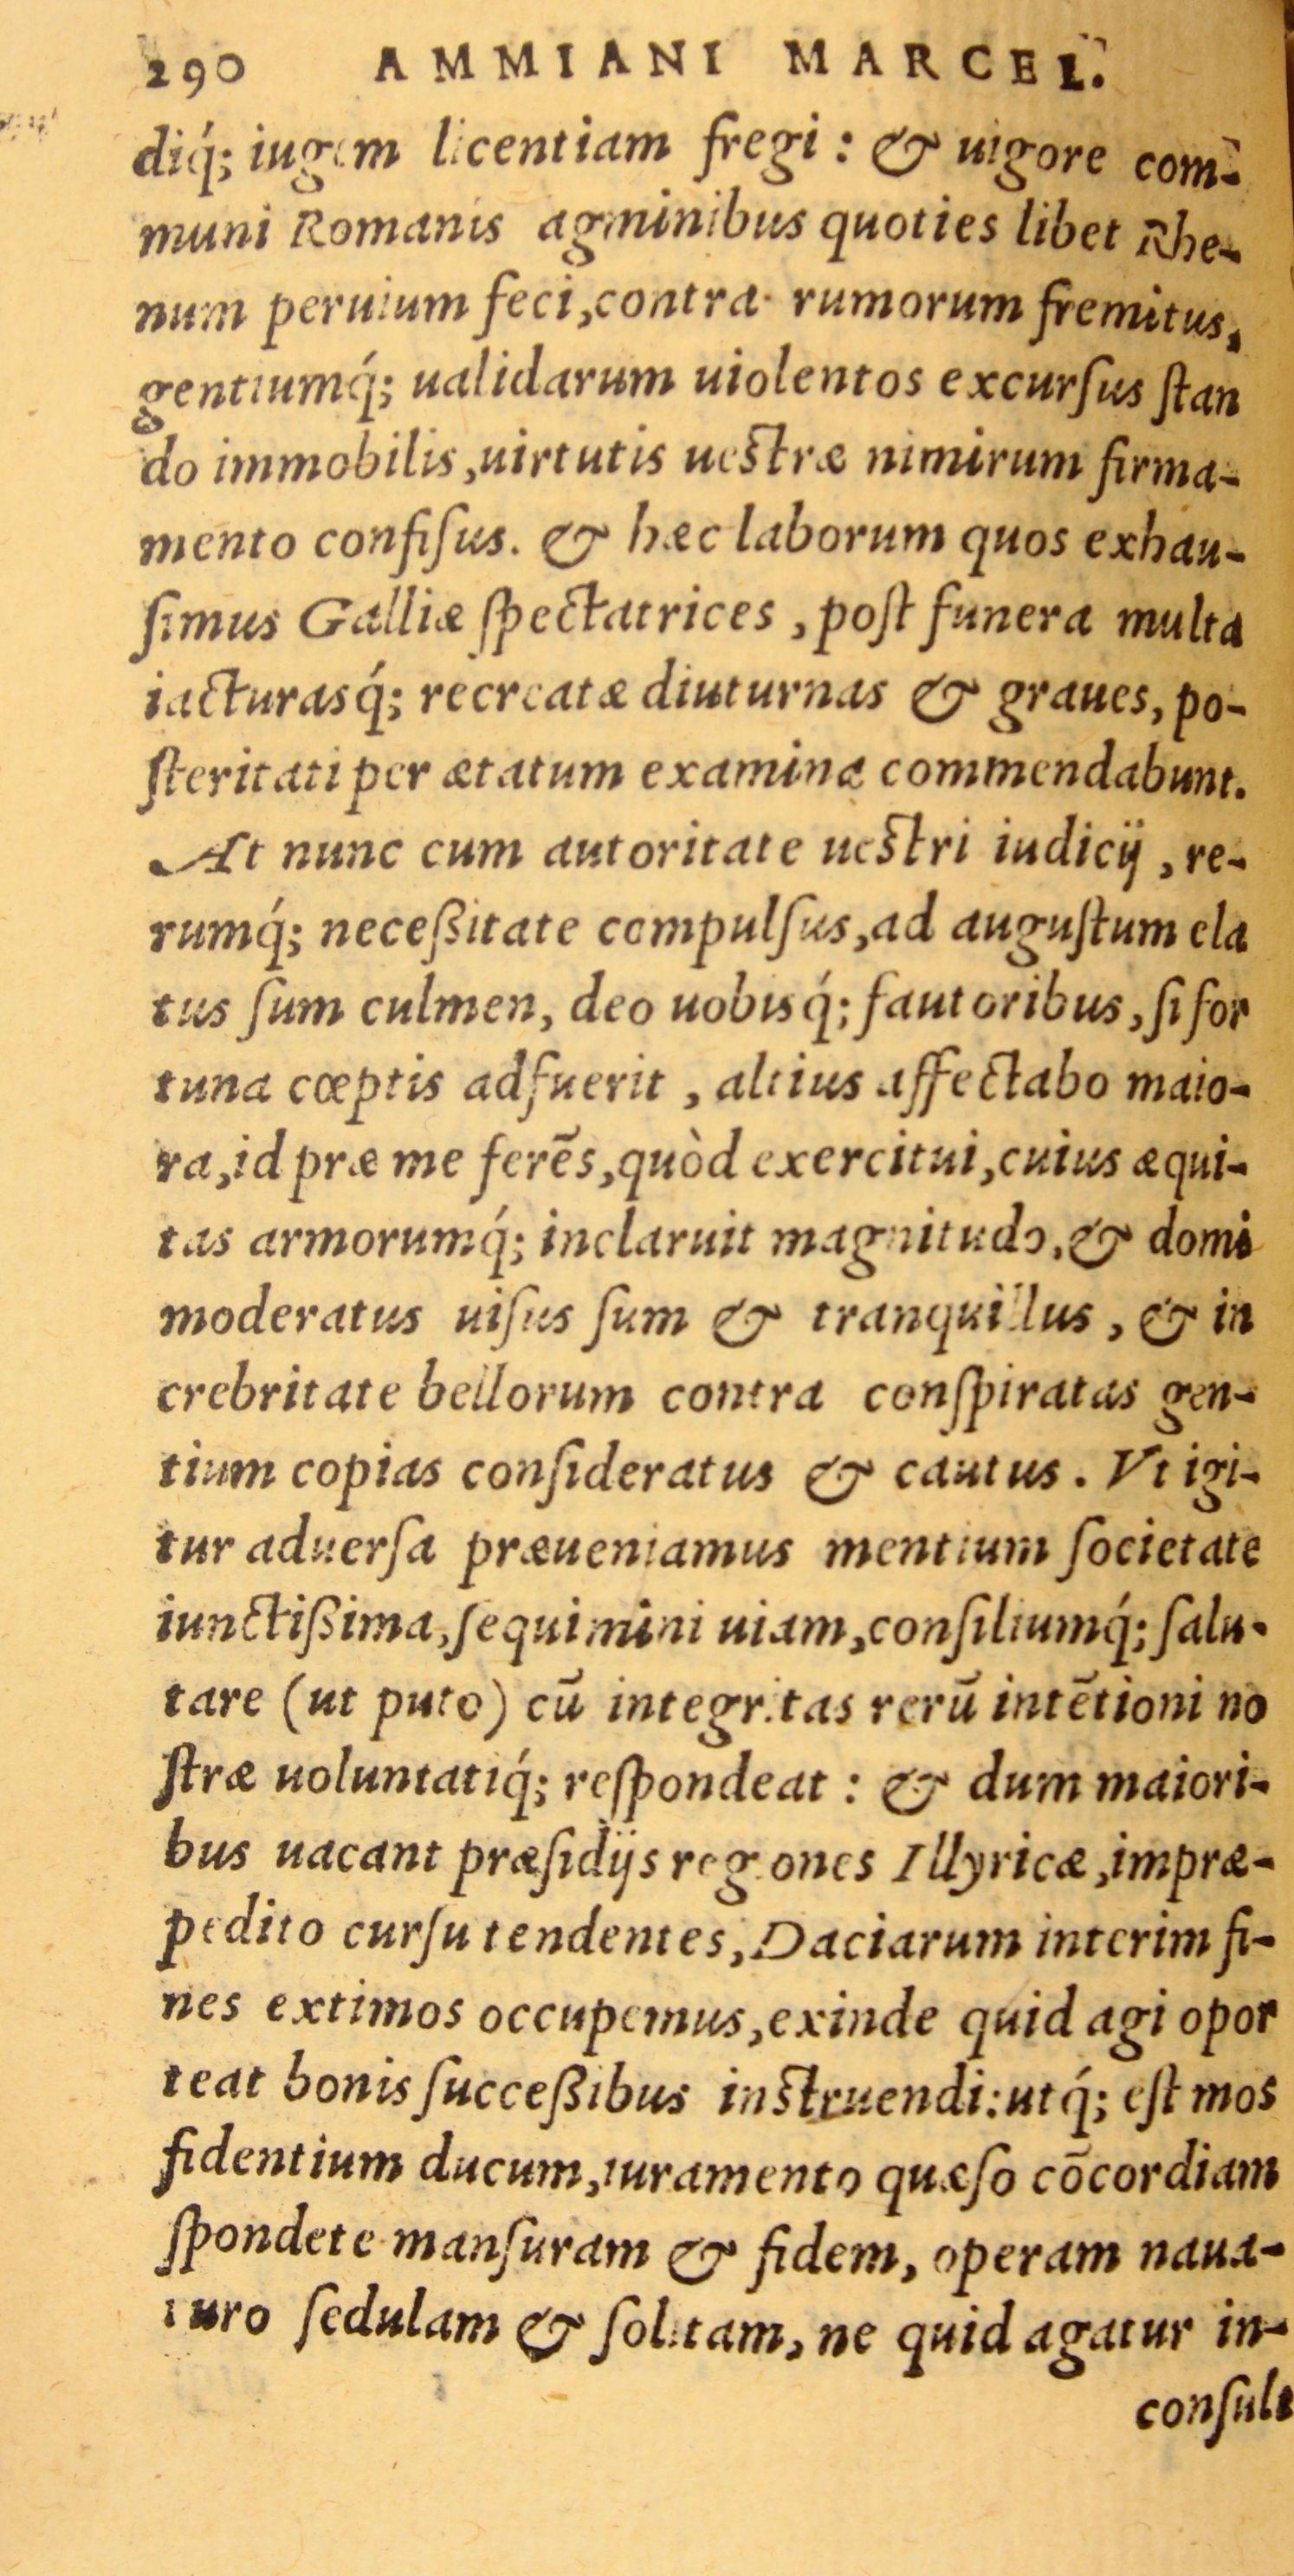 290 AMMIANI MARCEL.
diq́; iugem licentiam fregi : & uigore com-
muni Romanis agminibus quoties libet Rhe-
num peruium feci, contra rumorum fremitus,
gentiumq́; ualidarum uiolentos excurſus ſtan
do immobilis, uirtutis ueſtræ nimirum firma-
mento confiſus. & hæc laborum quos exhau-
ſimus Galliæ ſpectatrices, poſt funera multa
iacturasq́; recreatæ diuturnas & graues, po-
ſteritati per ætatum examina commendabunt.
At nunc cum autoritate ueſtri iudicij, re-
rumq́; neceßitate compulſus, ad auguſtum ela
tus ſum culmen, deo uobisq́; fautoribus, ſi for
tuna cœptis adfuerit, altius affectabo maio-
ra, id præ me ferēs, quòd exercitui, cuius æqui-
tas armorumq́; inclaruit magnitudo, & domi
moderatus uiſus ſum & tranquillus, & in
crebritate bellorum contra conſpiratas gen-
tium copias conſideratus & cautus. Vt igi-
tur aduerſa præueniamus mentium ſocietate
iunctißima, ſequimini uiam, conſiliumq́; ſalu-
tare (ut puto) cū integritas rerū intētioni no
ſtræ uoluntatiq́; reſpondeat : & dum maiori-
bus uacant præſidijs regiones Illyricæ, impræ-
pedito curſu tendentes, Daciarum interim fi-
nes extimos occupemus, exinde quid agi opor
teat bonis ſucceßibus inſtruendi: utq́; eſt mos
fidentium ducum, iuramento quæſo cōcordiam
ſpondete manſuram & fidem, operam naua-
turo ſedulam & ſolitam, ne quid agatur in-
conſult